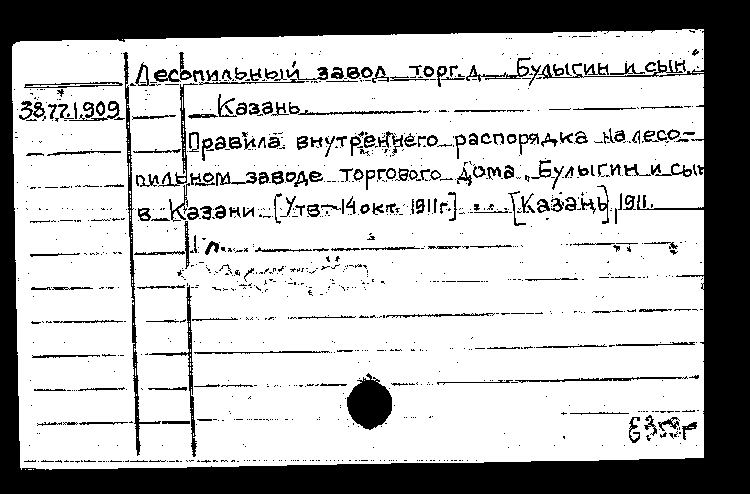 Лесопильный завод торг.д. Булыгин и сын.
38.77.1.909 Казань.
Правила внутреннего распорядка на лесо-
пильном заводе торгового Дома „Булыгин и сын
в Казани. [Утв. 14 окт. 1911г.] ... [Казань], 1911.
1 л.